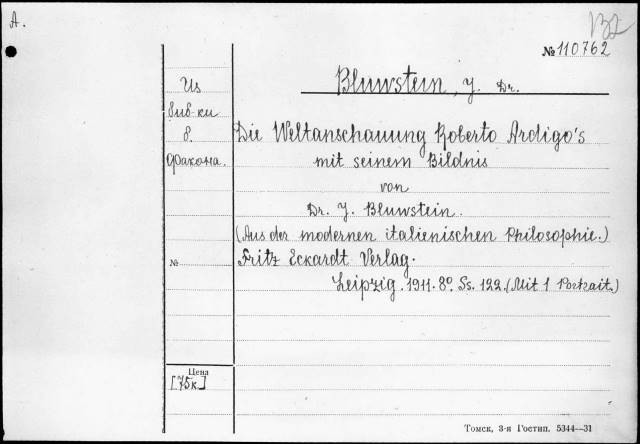 A.
№ 110762
Bluwstein, J. Dr.
Из
биб-ки
б.
Факона.
Die Weltanschauung Roberto Ardigo's
mit seinem Bildnis
von
Dr. J. Bluwstein.
(Aus der modernen italienischen Philosophie.)
№
Fritz Eckardt Verlag.
Leipzig. 1911. 8°. Ss. 122. (Mit 1 Portrait.)
Цена
[75к.]
Томск, 3-я Гостип. 5344—31